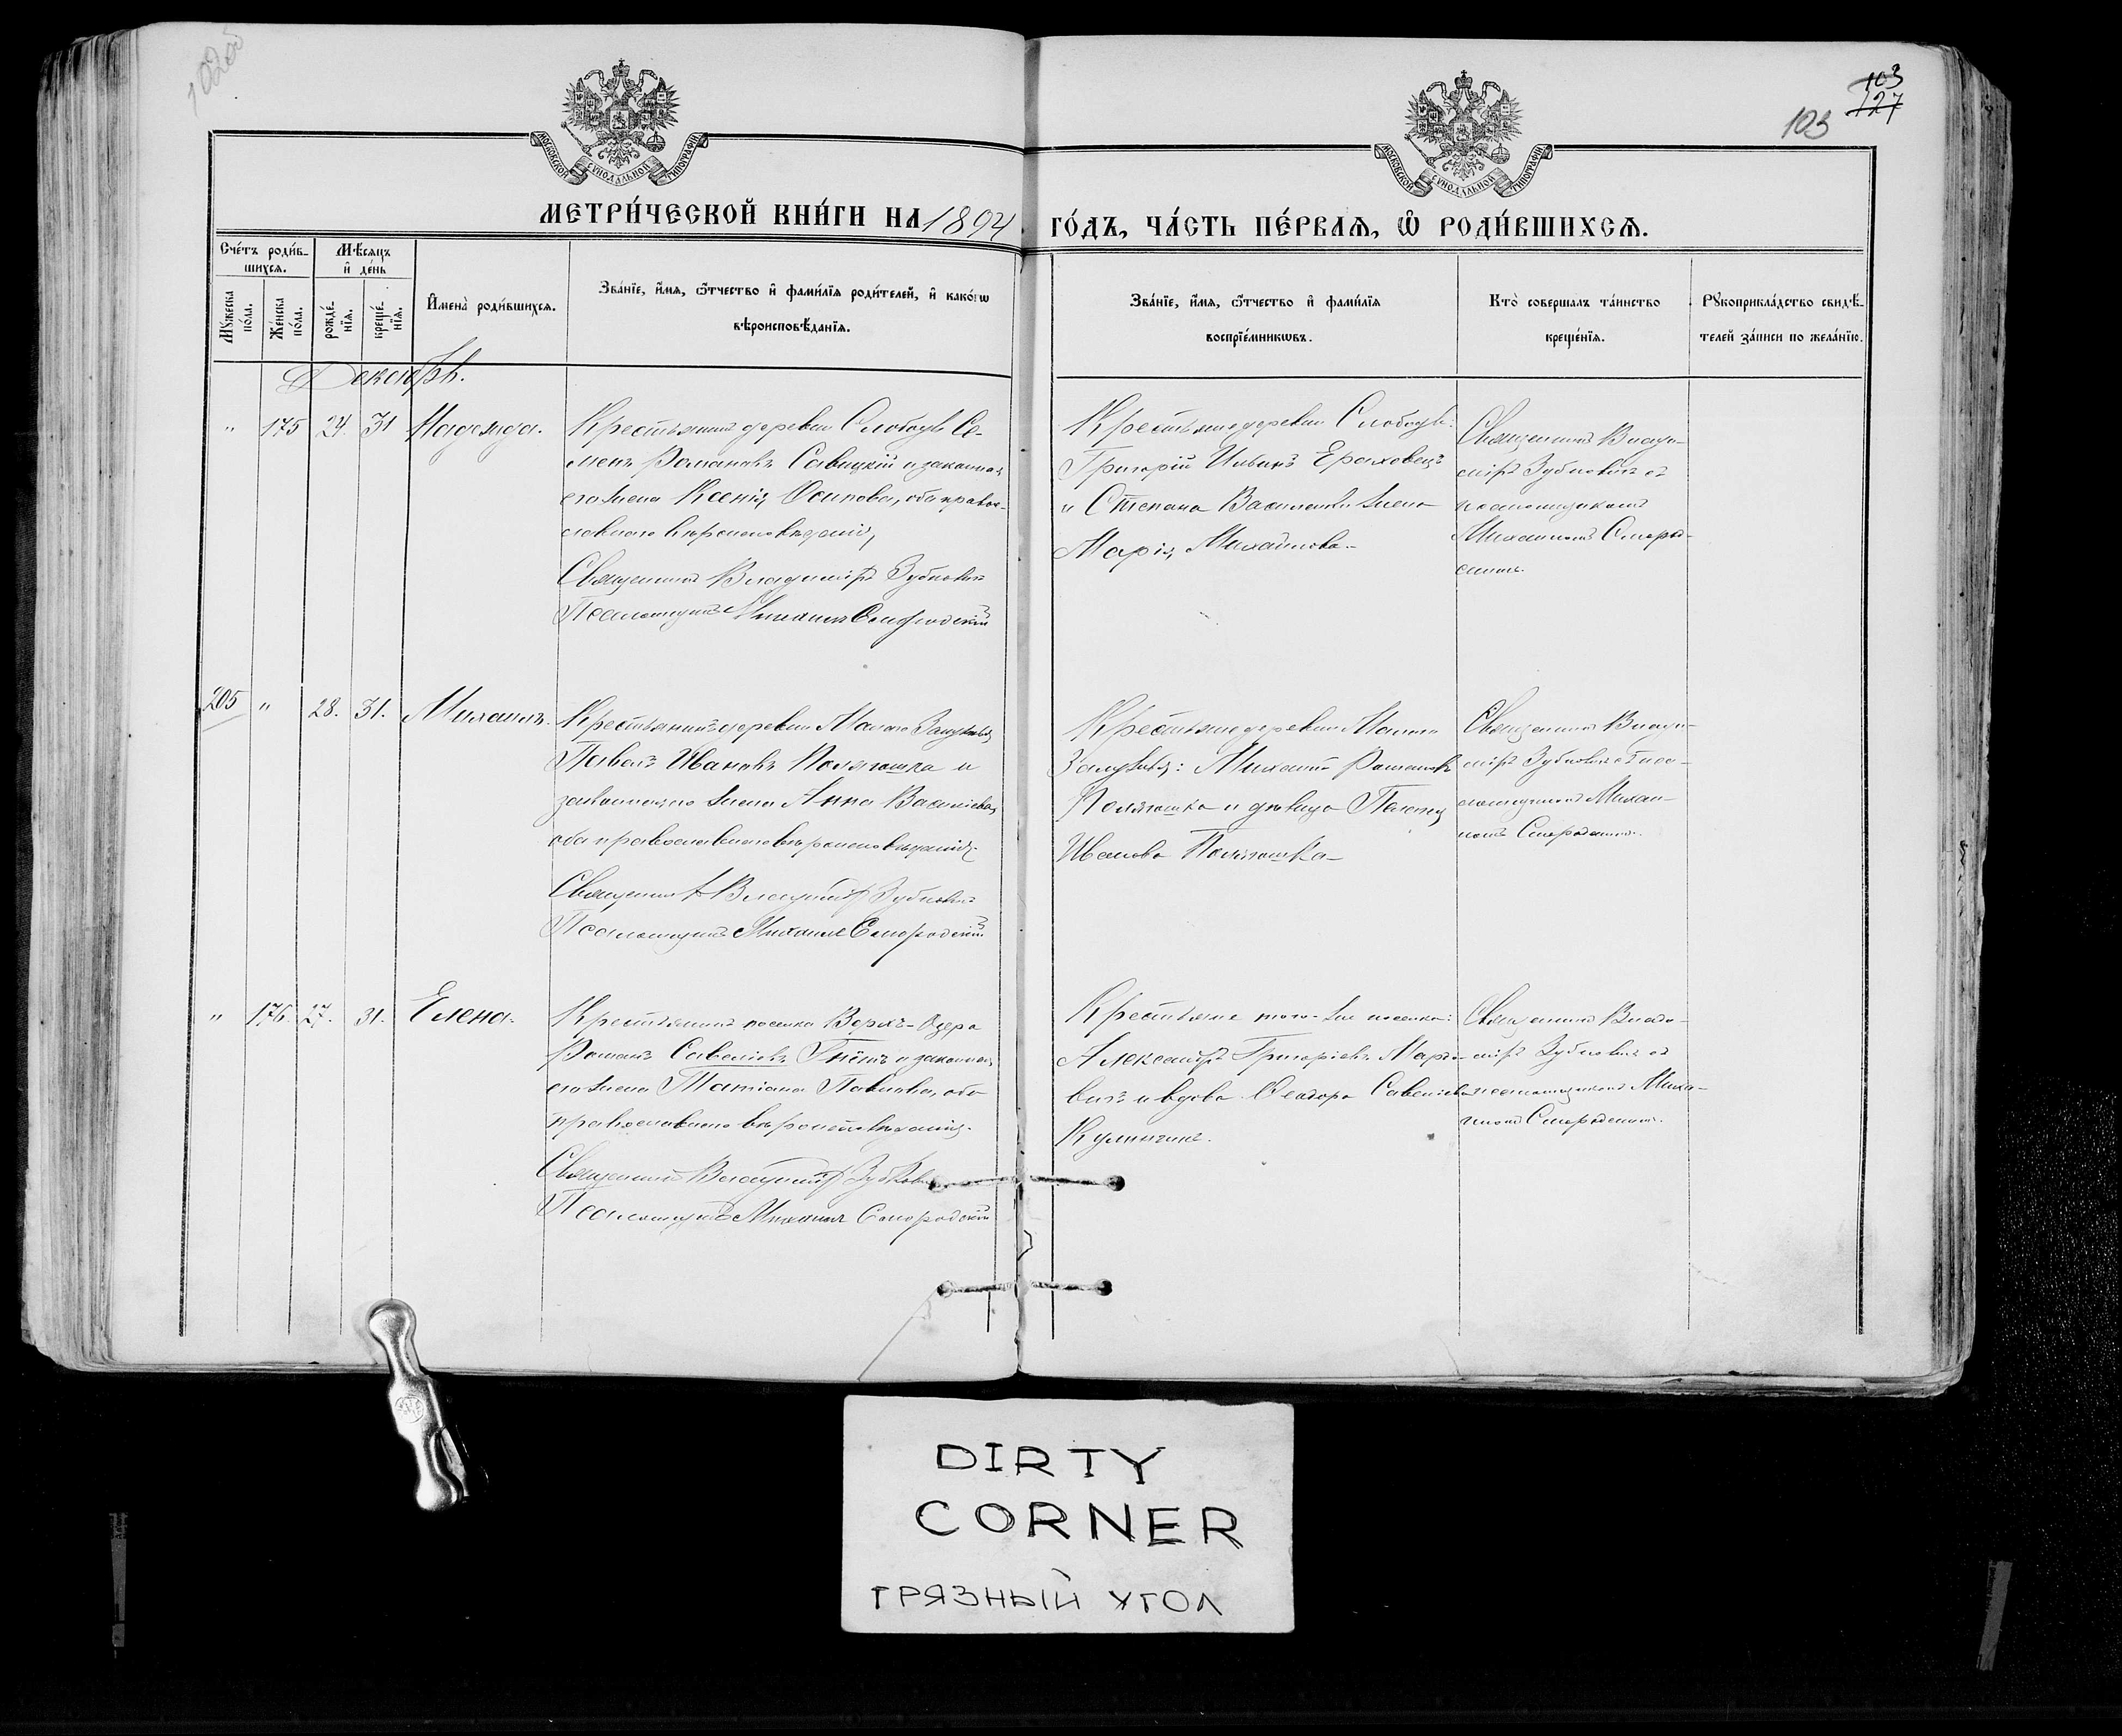 102об
103
127
103
МОСКОВСКОЙ СѴНОДАЛЬНОЙ ТИПОГРАФІИ
МОСКОВСКОЙ СѴНОДАЛЬНОЙ ТИПОГРАФІИ
МЕТРИ́ЧЕСКОЙ КНИ́ГИ НА 1894 ГО́ДЪ, ЧА́СТЬ ПЕ́РВАѦ, Ѽ РОДИ́ВШИХСѦ.
Сче́тъ роди́в-
шихсѧ.
Мѣ́сѧцъ
и҆ де́нь
Мꙋ́жеска
по́ла.
Же́нска
по́ла.
рожде́-
нїѧ.
креще́-
нїѧ.
И҆мена̀ роди́вшихсѧ.
Зва́нїе, и҆́мѧ, ѻ҆́тчество и҆ фами́лїѧ роди́телей, и҆ како́гѡ
вѣроисповѣ́данїѧ.
Зва́нїе, и҆́мѧ, ѻ҆́тчество и҆ фами́лїѧ
воспрїе́мникѡвъ.
Кто̀ соверша́лъ та́инство
креще́нїѧ.
Рꙋкоприкла́дство свидѣ́-
телей за́писи по жела́нїю.
Декабрь.
" 175 24. 31 Надежда.
Крестьянинъ деревни Слободы Се-
менъ Романовъ Савицкій и законная
его жена Ксенія Осипова, оба правос-
лавнаго вѣроисповѣданія,
Священникъ Владиміръ Зубковичъ
Псаломщикъ Михаилъ Смородскій
Крестьяне деревни Слободы:
Григорій Ильинъ Ераховецъ
и Степана Василевича жена
Марія Михайлова.-
Священникъ Влади-
міръ Зубковичъ съ
псаломщикомъ
Михаиломъ Сморо-
205 " 28. 31. Михаилъ.
Крестьянинъ деревни Малаго Залужья
Павелъ Ивановъ Полягошка и
законная его жена Анна Васильева,
оба православнаго вѣроисповѣданія.
Священникъ Владиміръ Зубковичъ
Псаломщикъ Михаилъ Смородскій
Крестьяне деревни Малаго
Залужья: Михаилъ Романовъ
Полягошка и дѣвица
Иванова Полягошка-
Священникъ Влади-
міръ Зубковичъ съ пса-
ломщикомъ Михаи-
ломъ Смородскимъ.
" 176. 27. 31. Елена.
Крестьянинъ поселка Верхъ-Озера
Романъ Савеліевъ и законная
его жена Татіана Павлова, оба
православнаго вѣроисповѣданія.
Священникъ Владиміръ Зубковичъ
Псаломщикъ Михаилъ Смородскій
Крестьяне того-же поселка:
Александръ Григоріевъ Марко-
вичъ и вдова Ѳеодора Савеліева
Священникъ Влади-
міръ Зубковичъ съ
псаломщикомъ Миха-
иломъ Смородскимъ.
DIRTY
CORNER
ГРЯЗНЫЙ УГОЛ